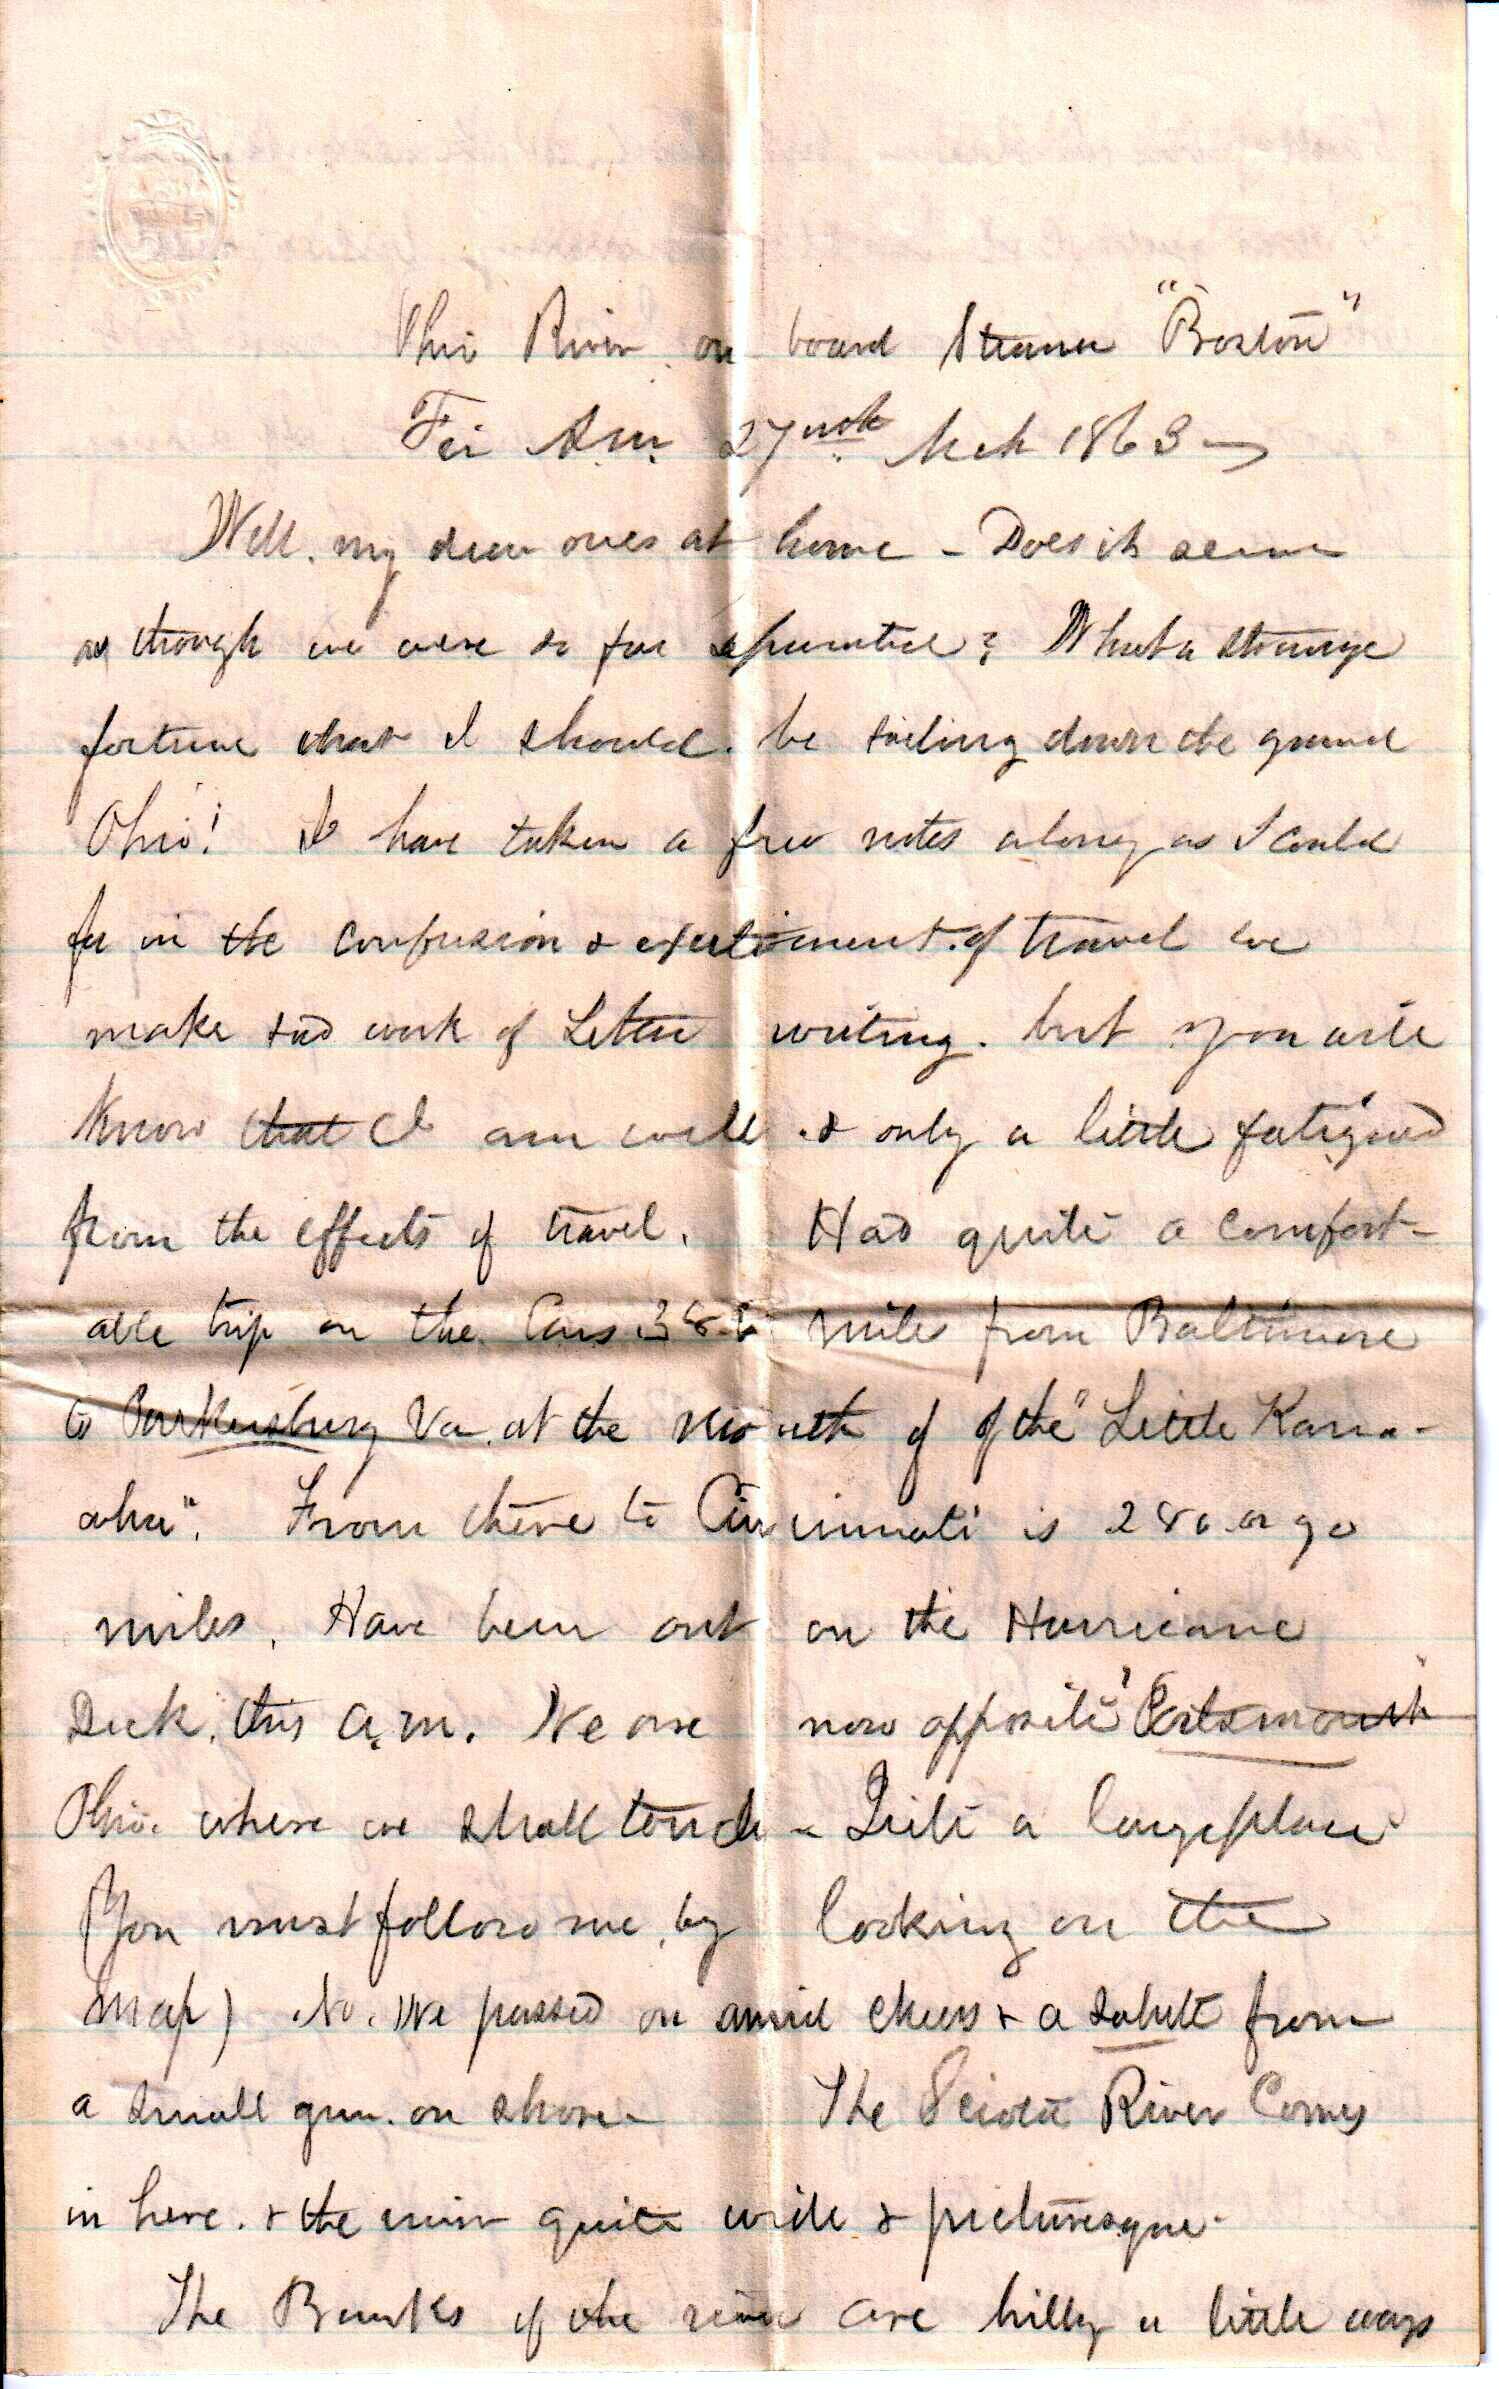 Ohio River on board Steamer "Boston"
Fri A.M. 27 Mch 1863
Well. my dear ones at home - Does it seem
as though we were so far separated? What a strange
fortune that I should be sailing down the grand
Ohio! I have taken a few notes along as I could
for in the confusion & excitement of travel we
make sad work of Letter writing. but you will
know that I am well & only a little fatigued
from the effects of travel. Had quite a comfort-
able trip on the Cars miles from Baltimore
to Parkersburg Va. at the mouth of of the "Little Kana-
wha". From there to Cincinnati is 280 or 90
miles. Have been out on the Hurricane
Deck, this a.m. We are now opposite "Portsmouth"
Ohio. where we shall touch - Quite a large place
(You must follow me, by looking on the
map) No. We passed on amid cheers & a salute from
a small gun. on shore - The Scioto River Comes
in here. & the view quite wide & picturesque.
The Banks of the river are hilly a little ways